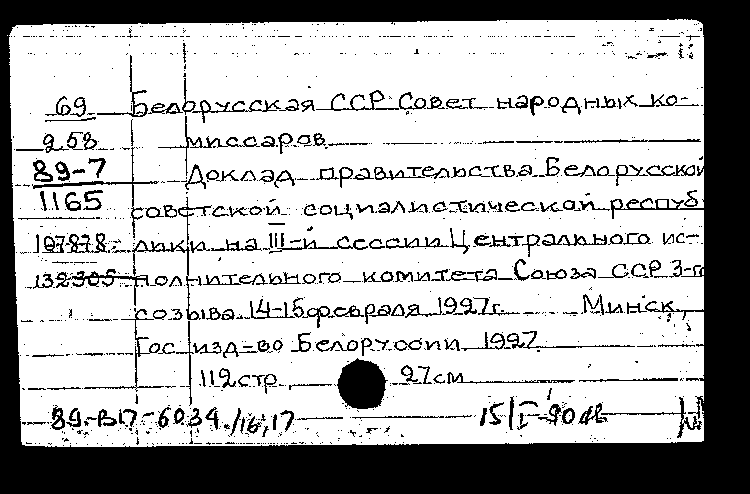 69 Белорусская ССР Совет народных ко-
258 миссаров
89-7 Доклад правительства Белорусской
1165 советской социалистической респуб
197878- лики на III-й сессии Центрального ис-
132305 полнительного комитета Союза ССР 3-го
созыва 14-15 февраля 1927г. Минск,
Гос изд-во Белоруссии 1927
112 стр. 27 см
89-В17-6034./16,17 15/I-90